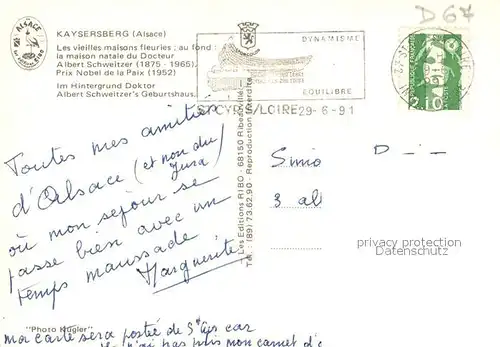 D67
ALSACE
KAYSERSBERG (Alsace)
Les vieilles maisons fleuries ; au fond :
la maison natale du Docteur
Albert Schweitzer (1875 - 1965),
Prix Nobel de la Paix (1952)
Im Hintergrund Doktor
Albert Schweitzer's Geburtshaus.
DYNAMISME
EQUILIBRE
ST CYR S/LOIRE 29-6-91
Toutes mes amitiés
d'Alsace (et non du
Jura)
où mon séjour se
passe bien avec un
temps maussade
Marguerite
Les Editions RIBO - 68150 Ribeauvillé
Tél. : (89) 73.62.90 - Reproduction interdite
Simo D
3 al
privacy protection
Datenschutz
"Photo Kugler"
ma carte sera postée de St Cyr car
pas pris mon carnet d'a